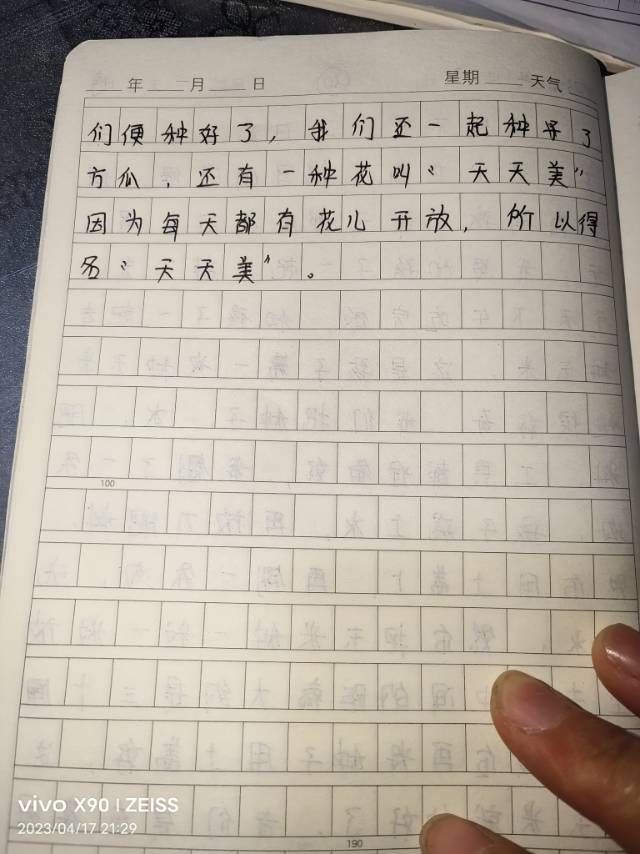 年 月 日 星期 天气
们便种好了，我们还一起种子了
方瓜，还有一种花叫“天天美”
因为每天都有花儿开放，所以得
名“天天美”。
100
190
vivo X90 | ZEISS
2023/04/17 21:29